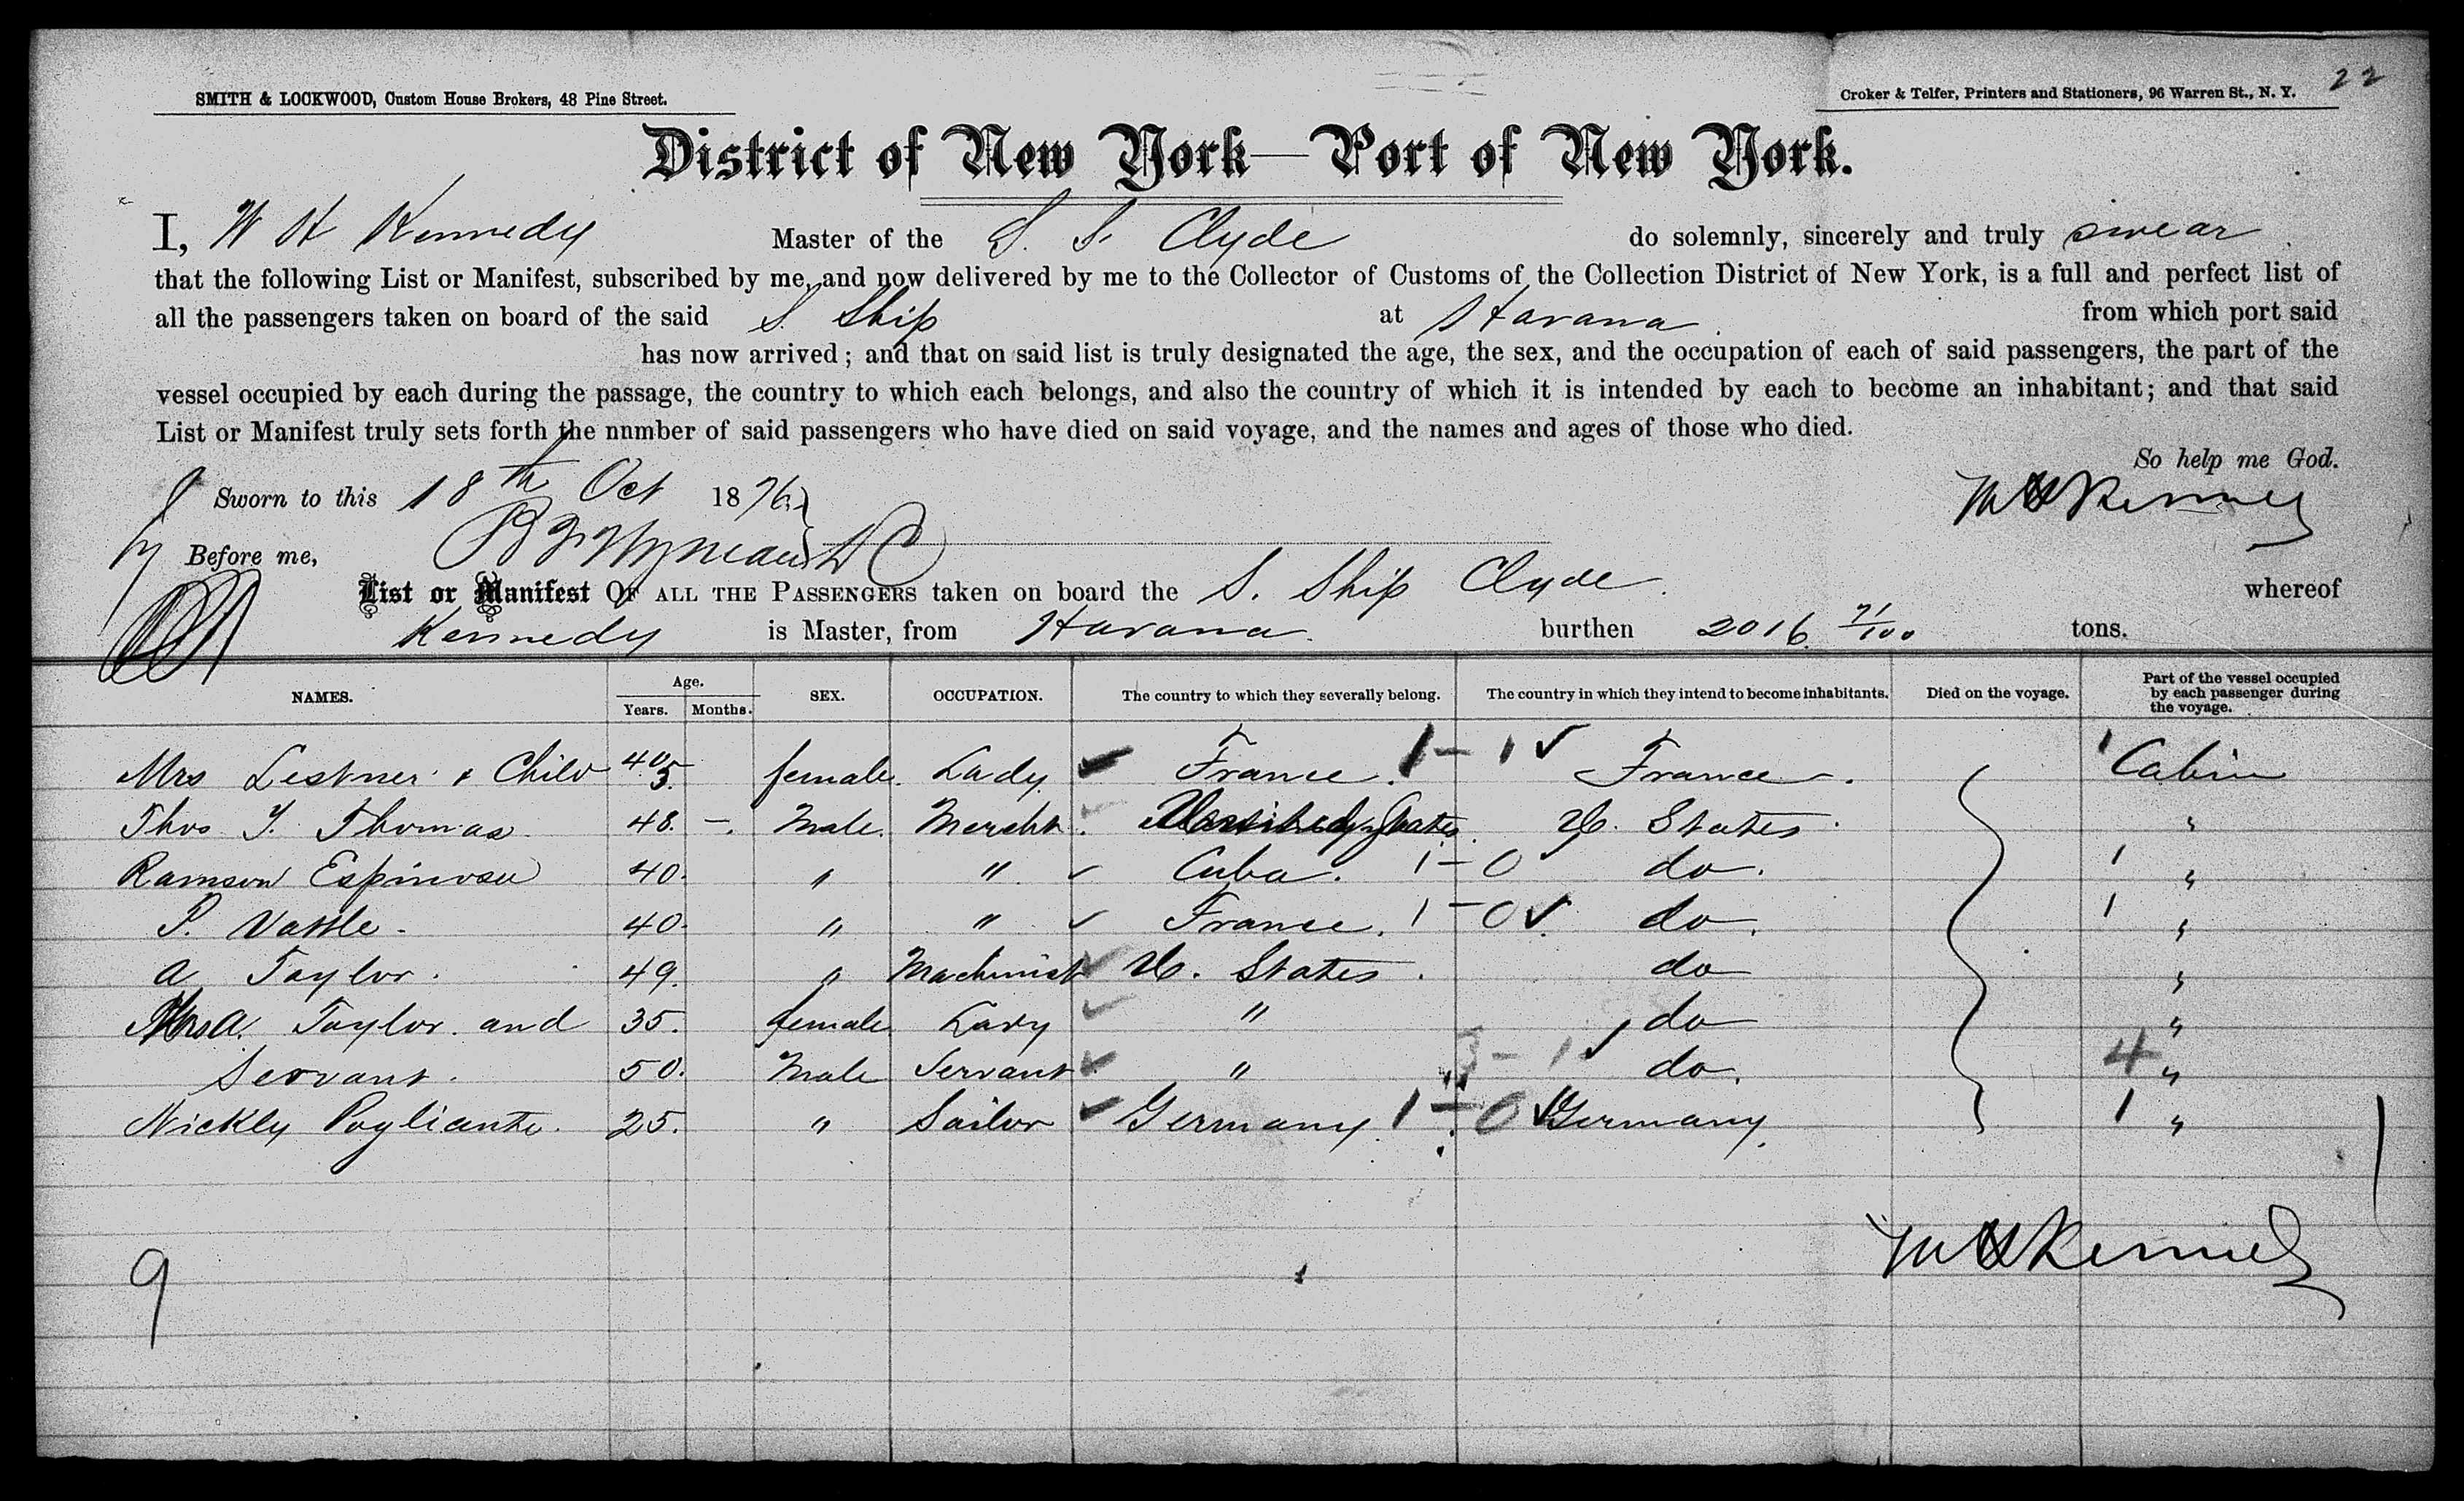 22
SMITH & LOCKWOOD, Custom House Brokers, 48 Pine Street.
Croker & Telfer, Printers and Stationers, 96 Warren St., N. Y.
District of New York—Port of New York.
I, W H Kennedy Master of the S. S. Clyde do solemnly, sincerely and truly swear
that the following List or Manifest, subscribed by me, and now delivered by me to the Collector of Customs of the Collection District of New York, is a full and perfect list of
all the passengers taken on board of the said S. Ship at Havana from which port said
has now arrived; and that on said list is truly designated the age, the sex, and the occupation of each of said passengers, the part of the
vessel occupied by each during the passage, the country to which each belongs, and also the country of which it is intended by each to become an inhabitant; and that said
List or Manifest truly sets forth the nnmber of said passengers who have died on said voyage, and the names and ages of those who died.
So help me God.
Sworn to this 18th Oct 1876
Before me,
List or Manifest OF ALL THE PASSENGERS taken on board the S. Ship Clyde. whereof
Kennedy is Master, from Havana. burthen 2016 71/100 tons.
NAMES. Age. Years. Months. SEX. OCCUPATION. The country to which they severally belong. The country in which they intend to become inhabitants. Died on the voyage. Part of the vessel occupied by each passenger during the voyage.
Mrs Lestner & Child 40 5 female. Lady. ✓ France. 1 - 1 ✓ France. 1 Cabin
Thos Y. Thomas 48. -. Male. Mercht. ✓ States U. States. "
Ramson Espinosa 40. " " ✓ Cuba. 1 - 0 do. 1 "
P. Vattle. 40. " " ✓ France. 1 - 0 ✓ do. 1 "
A Taylor. 49. " Machinist ✓ U. States. do "
Mrs A. Taylor and 35. female Lady ✓ " do "
Servant. 50. Male Servant ✓ " 3 - 1 ✓ do. 4 "
Nickly Pogliante. 25. " Sailor ✓ Germany. 1 - 0 ✓ Germany. 1 "
9